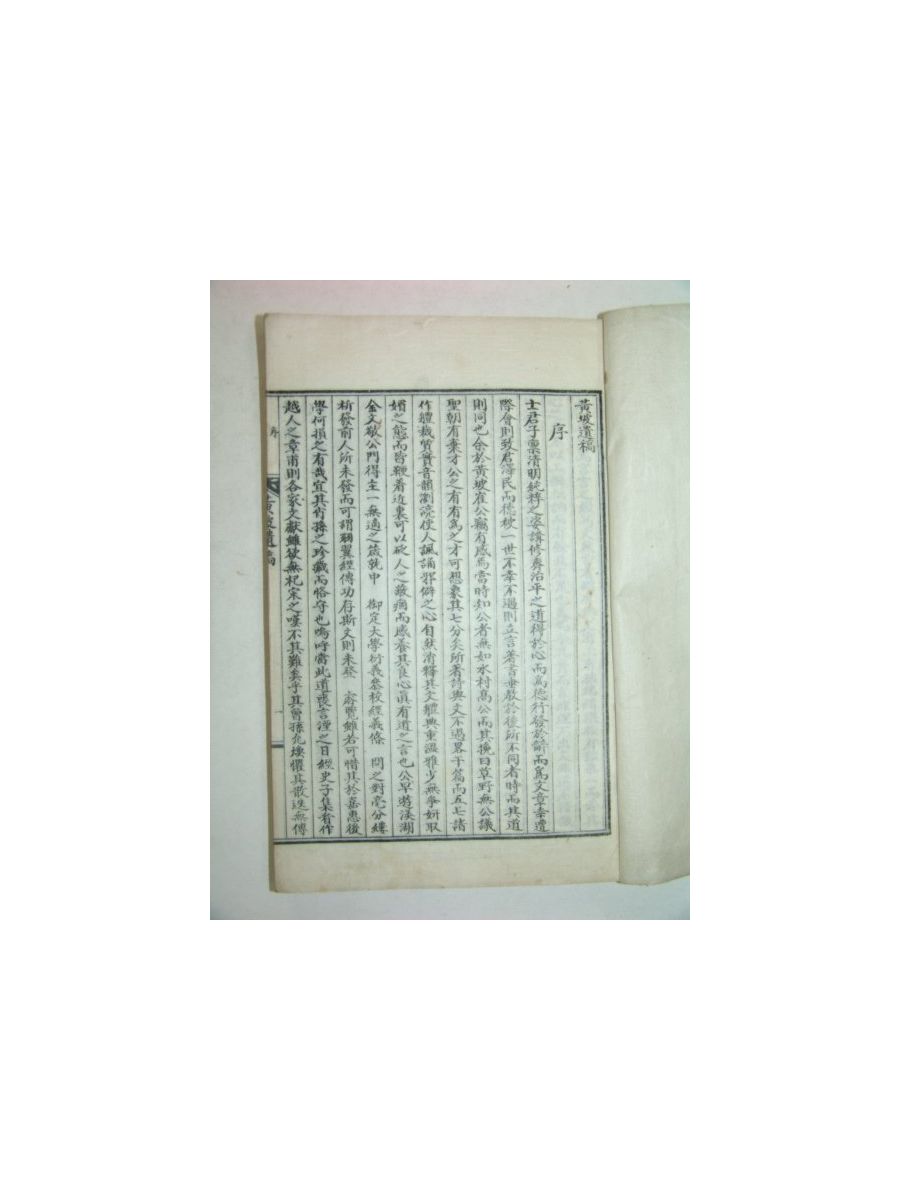 黃坡遺稿
序
士君子禀清明純粹之姿講修齊治平之道得於心而爲德行發於辭而爲文章幸遭
際會則致君澤民而德被一世不幸不遇則立言著書垂敎於後所不同者時而其道
則同也余於黃坡崔公竊有感焉當時知公者無如水村高公而其挽曰草野無公議
聖朝有棄才公之有有爲之才可想象其七分矣所著詩與文不過畧干篇而五七諸
作體裁質實音韻瀏浣使人諷誦邪僻之心自然消釋其文體典重溫雅少無爭姸取
媚之態而皆鞭着近裏可以砭人之蔽痼而感養其良心眞有道之言也公早遊渼湖
金文敬公門得主一無適之箴就中 御定大學衍義叅校經義條 問之對毫分縷
析發前人所未發而可謂羽翼經傳功存斯文則未登 雖若可惜其於嘉惠後
學何損之有哉宜其肖孫之珍藏而恪守也嗚呼當此道喪言湮之日經史子集看作
越人之章甫則各家文獻雖欲無杞宋之嘆不其難矣乎其曾孫允 懼其散迭無傳
序
黃坡遺稿
一